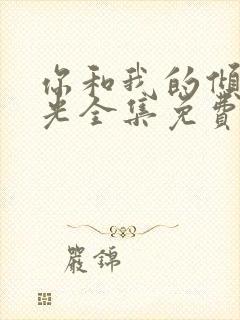 你和我的傾
光全集免費
嚴錦